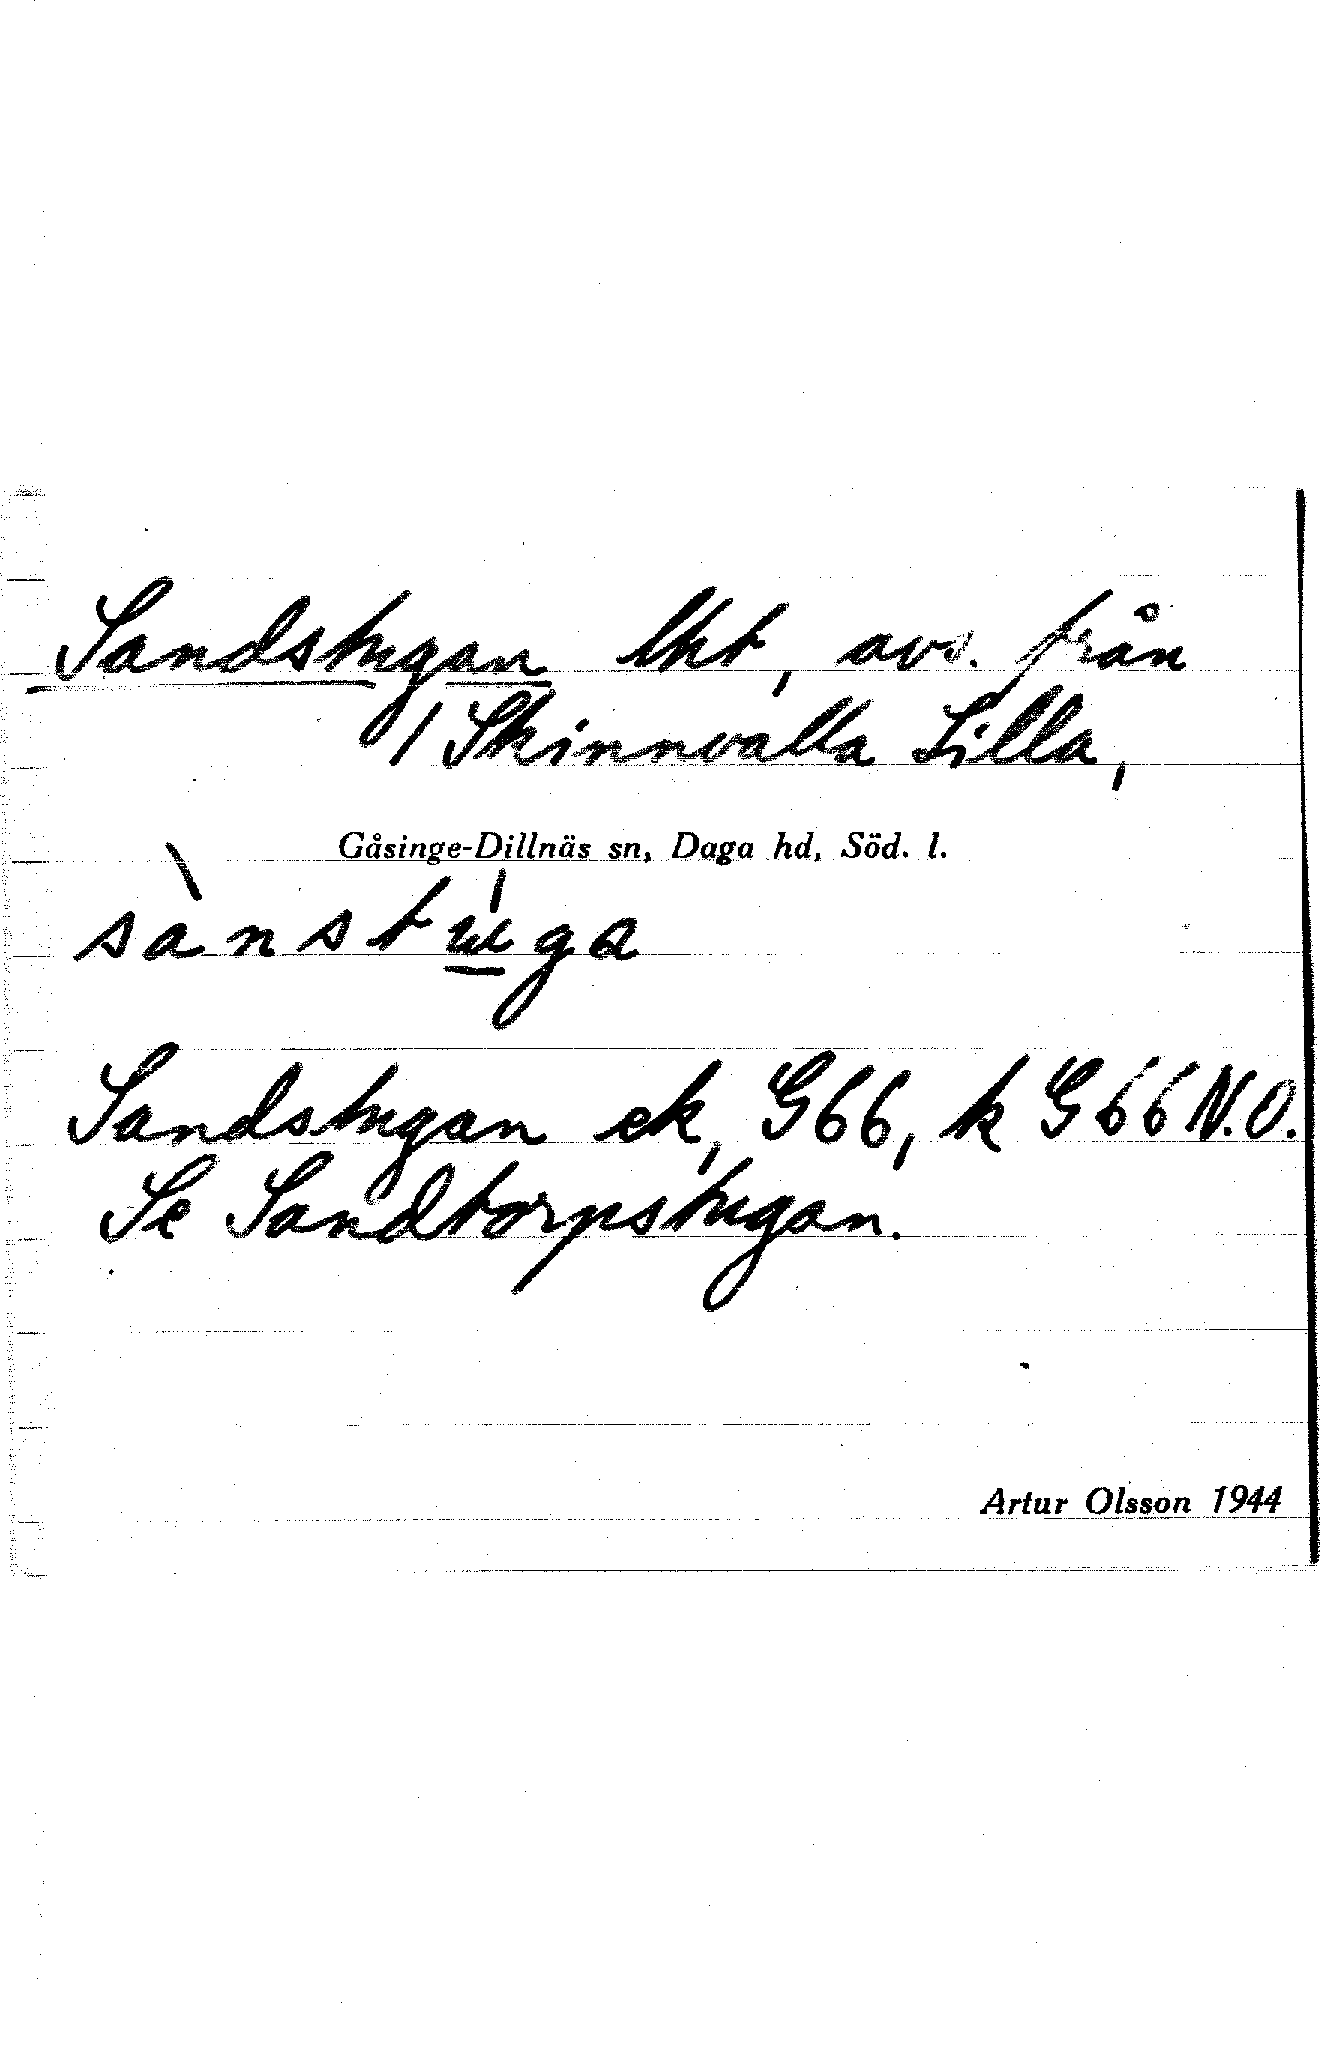 Sandstugan lht, avs. från
/ Skinnvalla Lilla,
Gåsinge-Dillnäs sn, Daga hd, Söd. l.
sànstúga
Sandstugan ek, G66, k G66 N.O.
Se Sandtorpstugan.
Artur Olsson 1944